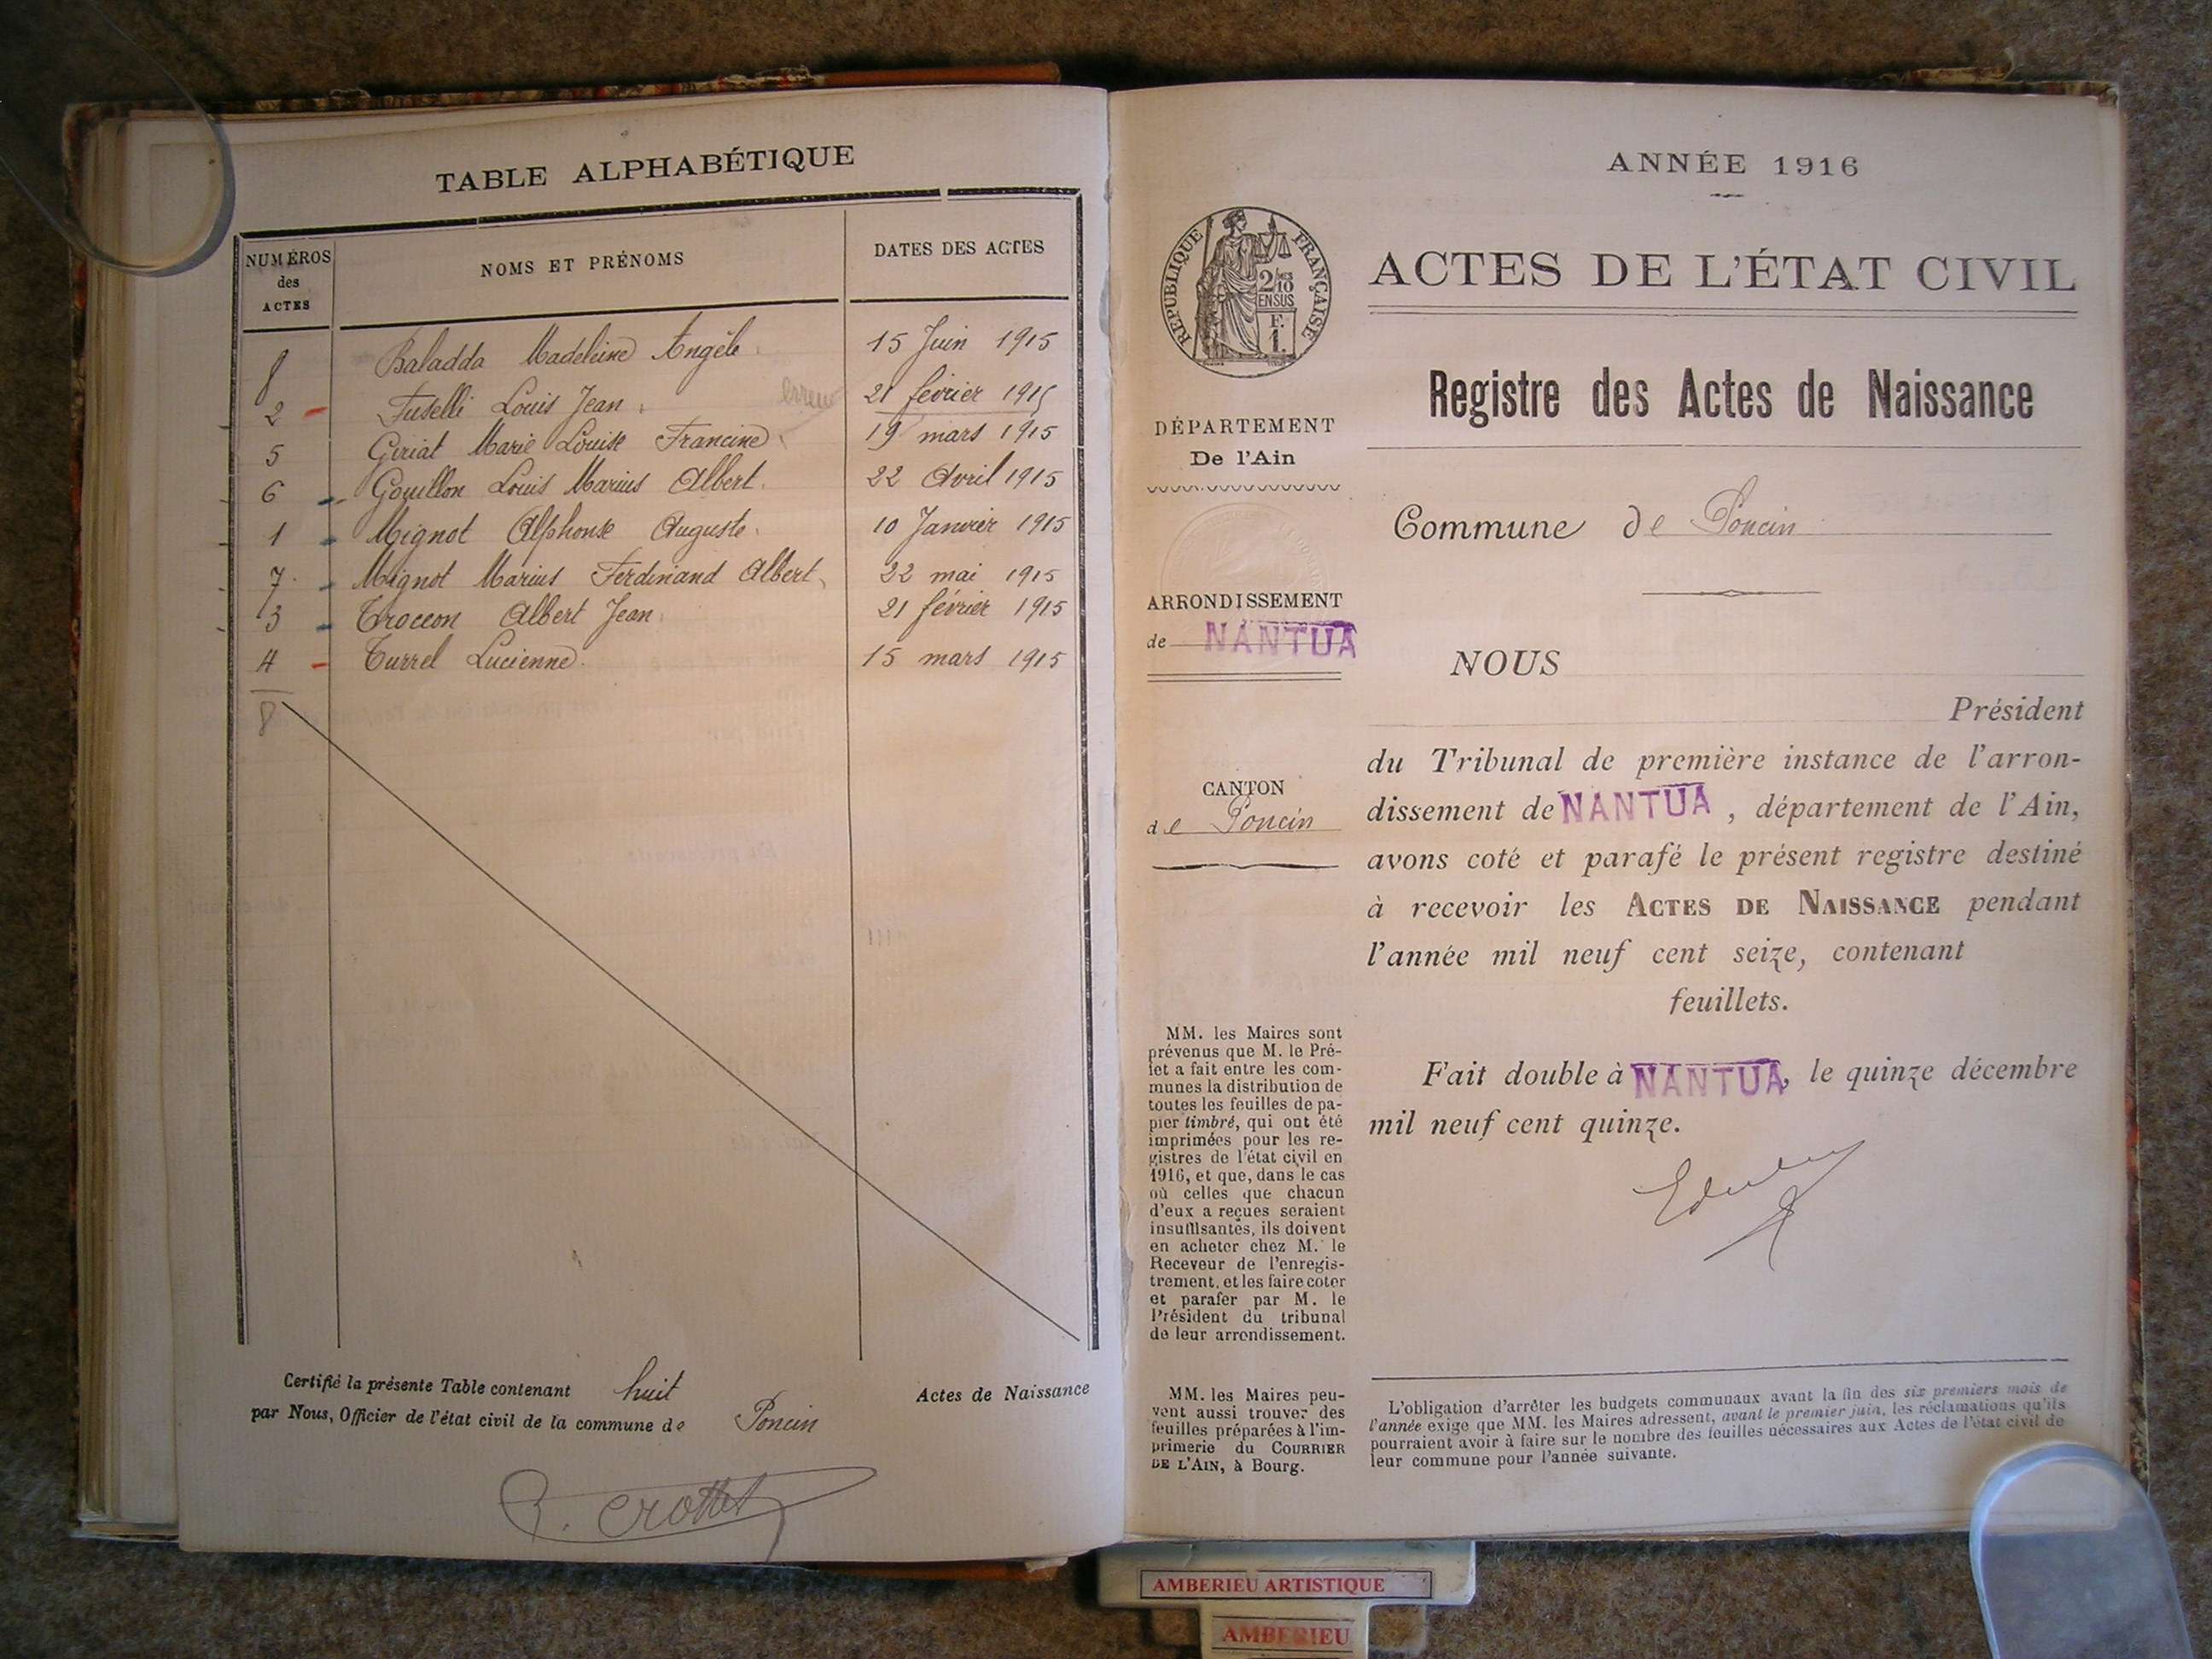 TABLE ALPHABÉTIQUE
NUMÉROS des ACTES NOMS ET PRÉNOMS DATES DES ACTES
8 Baladda Madeleine Angèle 15 Juin 1915
2 Fuselli Louis Jean erreur 21 février 1915
5 Giriat Marie Louise Francine 19 mars 1915
6 Gouillon Louis Marius Albert. 22 Avril 1915
1 Mignot Alphonse Auguste. 10 Janvier 1915
7. Mignot Marius Ferdinand Albert, 22 mai 1915
3 Troccon Albert Jean 21 février 1915
4 Turrel Lucienne. 15 mars 1915
8
Certifié la présente Table contenant huit Actes de Naissance
par Nous, Officier de l'état civil de la commune de Poncin
Crottet
ANNÉE 1916
RÉPUBLIQUE FRANÇAISE
2/10
EN SUS
F.
1.
ACTES DE L'ÉTAT CIVIL
Registre des Actes de Naissance
DÉPARTEMENT
De l'Ain
Commune de Poncin
ARRONDISSEMENT
de NANTUA
CANTON
de Poncin
NOUS
Président
du Tribunal de première instance de l'arron-
dissement de NANTUA, département de l'Ain,
avons coté et parafé le présent registre destiné
à recevoir les ACTES DE NAISSANCE pendant
l'année mil neuf cent seize, contenant
feuillets.
Fait double à NANTUA, le quinze décembre
mil neuf cent quinze.
MM. les Maires sont
prévenus que M. le Pré-
fet a fait entre les com-
munes la distribution de
toutes les feuilles de pa-
pier timbré, qui ont été
imprimées pour les re-
gistres de l'état civil en
1916, et que, dans le cas
où celles que chacun
d'eux a reçues seraient
insuffisantes, ils doivent
en acheter chez M. le
Receveur de l'enregis-
trement, et les faire coter
et parafer par M. le
Président du tribunal
de leur arrondissement.
MM. les Maires peu-
vent aussi trouver des
feuilles préparées à l'im-
primerie du COURRIER
DE L'AIN, à Bourg.
L'obligation d'arrêter les budgets communaux avant la fin des six premiers mois de
l'année exige que MM. les Maires adressent, avant le premier juin, les réclamations qu'ils
pourraient avoir à faire sur le nombre des feuilles nécessaires aux Actes de l'état civil de
leur commune pour l'année suivante.
AMBERIEU ARTISTIQUE
AMBERIEU